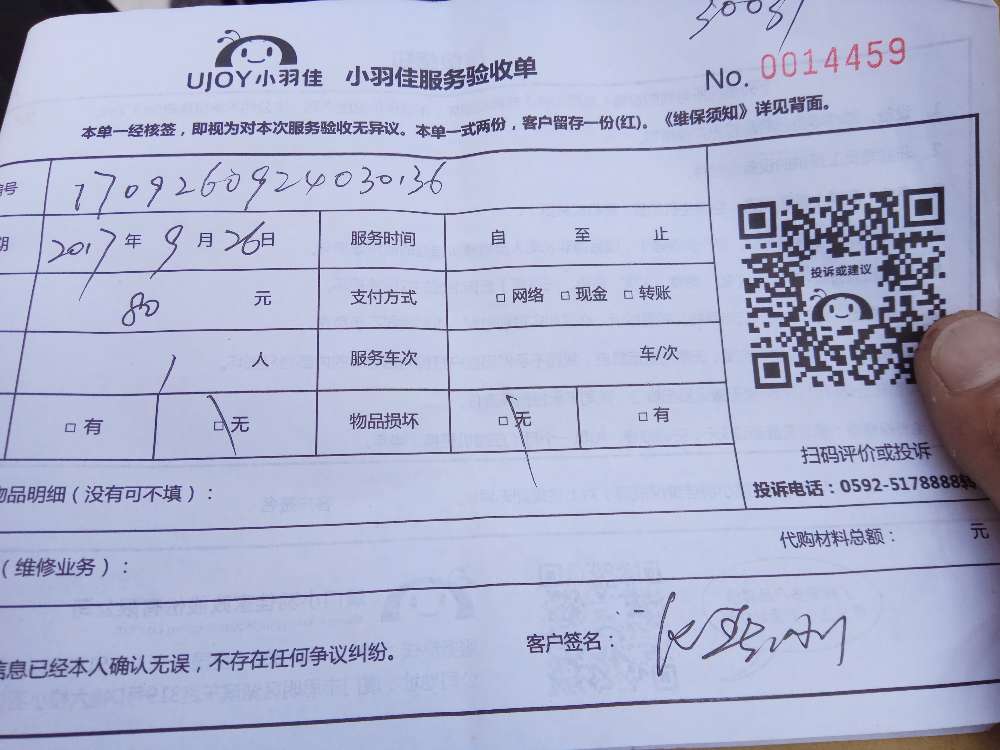 UJOY小羽佳 小羽佳服务验收单
No. 0014459
本单一经核签，即视为对本次服务验收无异议。本单一式两份，客户留存一份(红)。《维保须知》详见背面。
号 1709260924030136
期 2017年9月26日 服务时间 自 至 止
80 元 支付方式 □ 网络 □ 现金 □ 转账
1 人 服务车次 车/次
□ 有 □ 无 物品损坏 □ 无 □ 有
投诉或建议
扫码评价或投诉
投诉电话：0592-5178888
物品明细（没有可不填）：
代购材料总额： 元
（维修业务）：
信息已经本人确认无误，不存在任何争议纠纷。
客户签名：